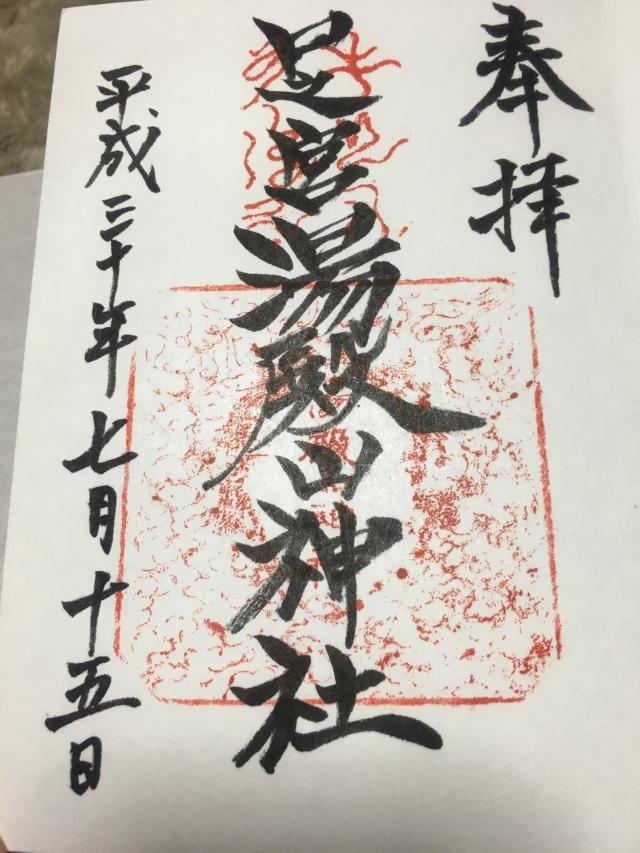 奉拝
里之宮湯殿山神社
平成三十年七月十五日